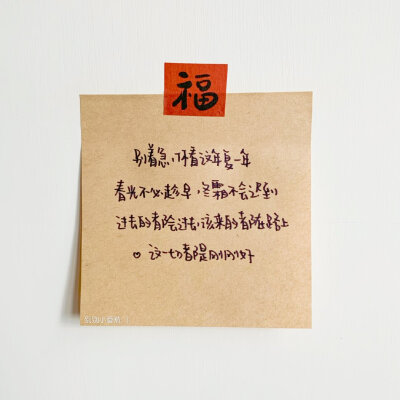 福
别着急,你看这年复一年
春光不必趁早,冬霜不会迟到
过去的都会过去,该来的都在路上
这一切都是刚刚好